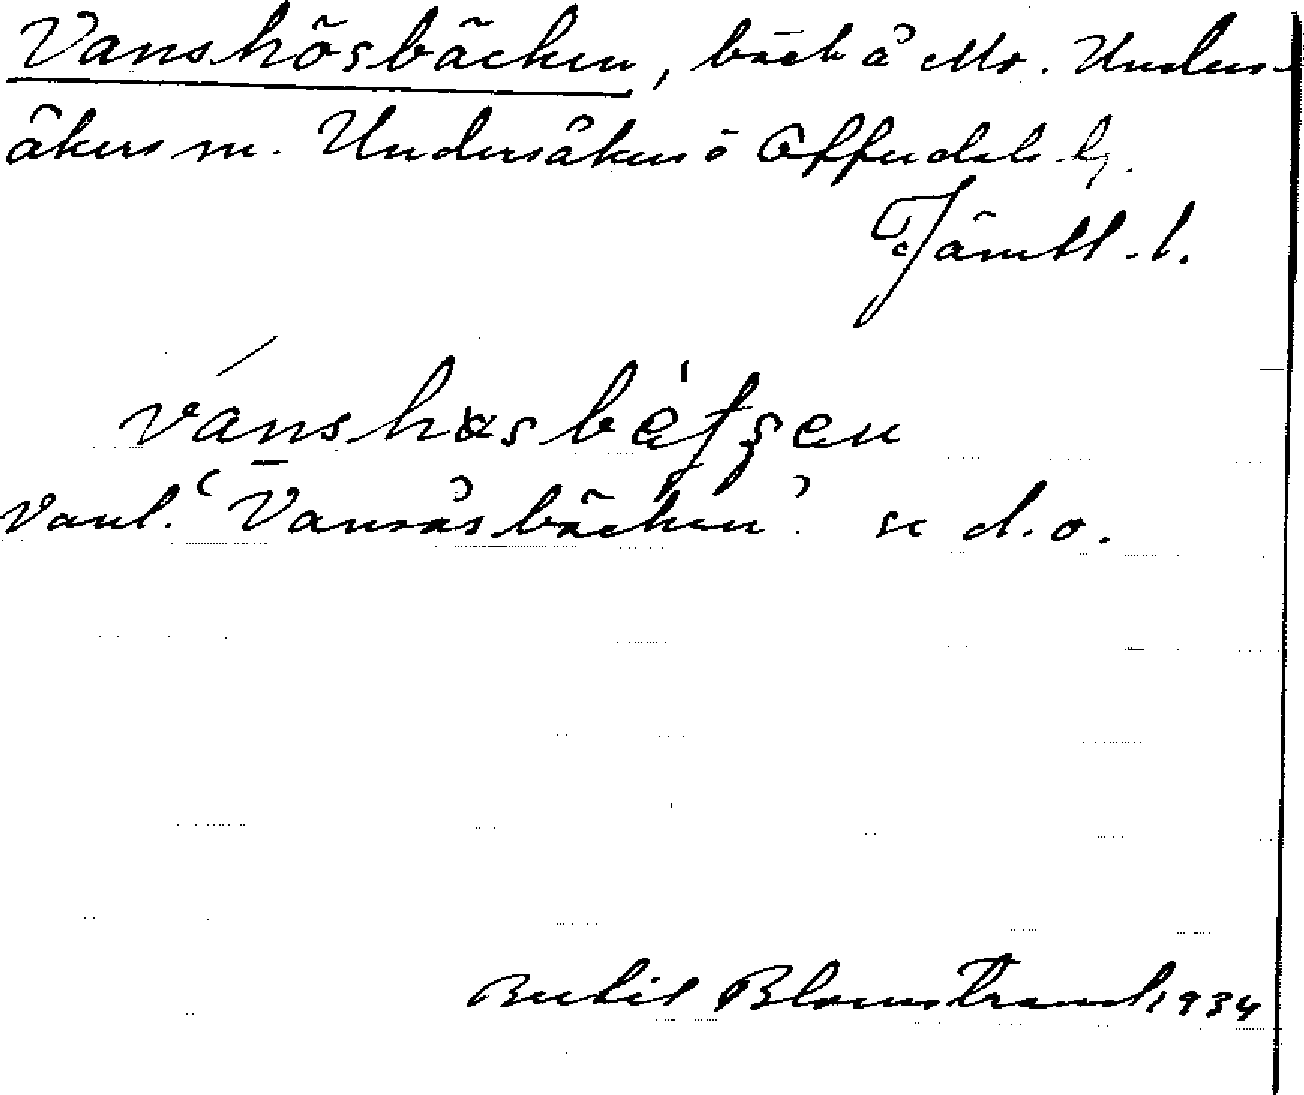 Vanshösbäcken, bäck å Mo. Unders-
åkers sn. Undersåkers o Offerdals tg.
Jämtl. l.
vánshɑsbétʃen
Vanl. "Vansåsbäcken". se d.o.
Bertil Blomstrand 1934